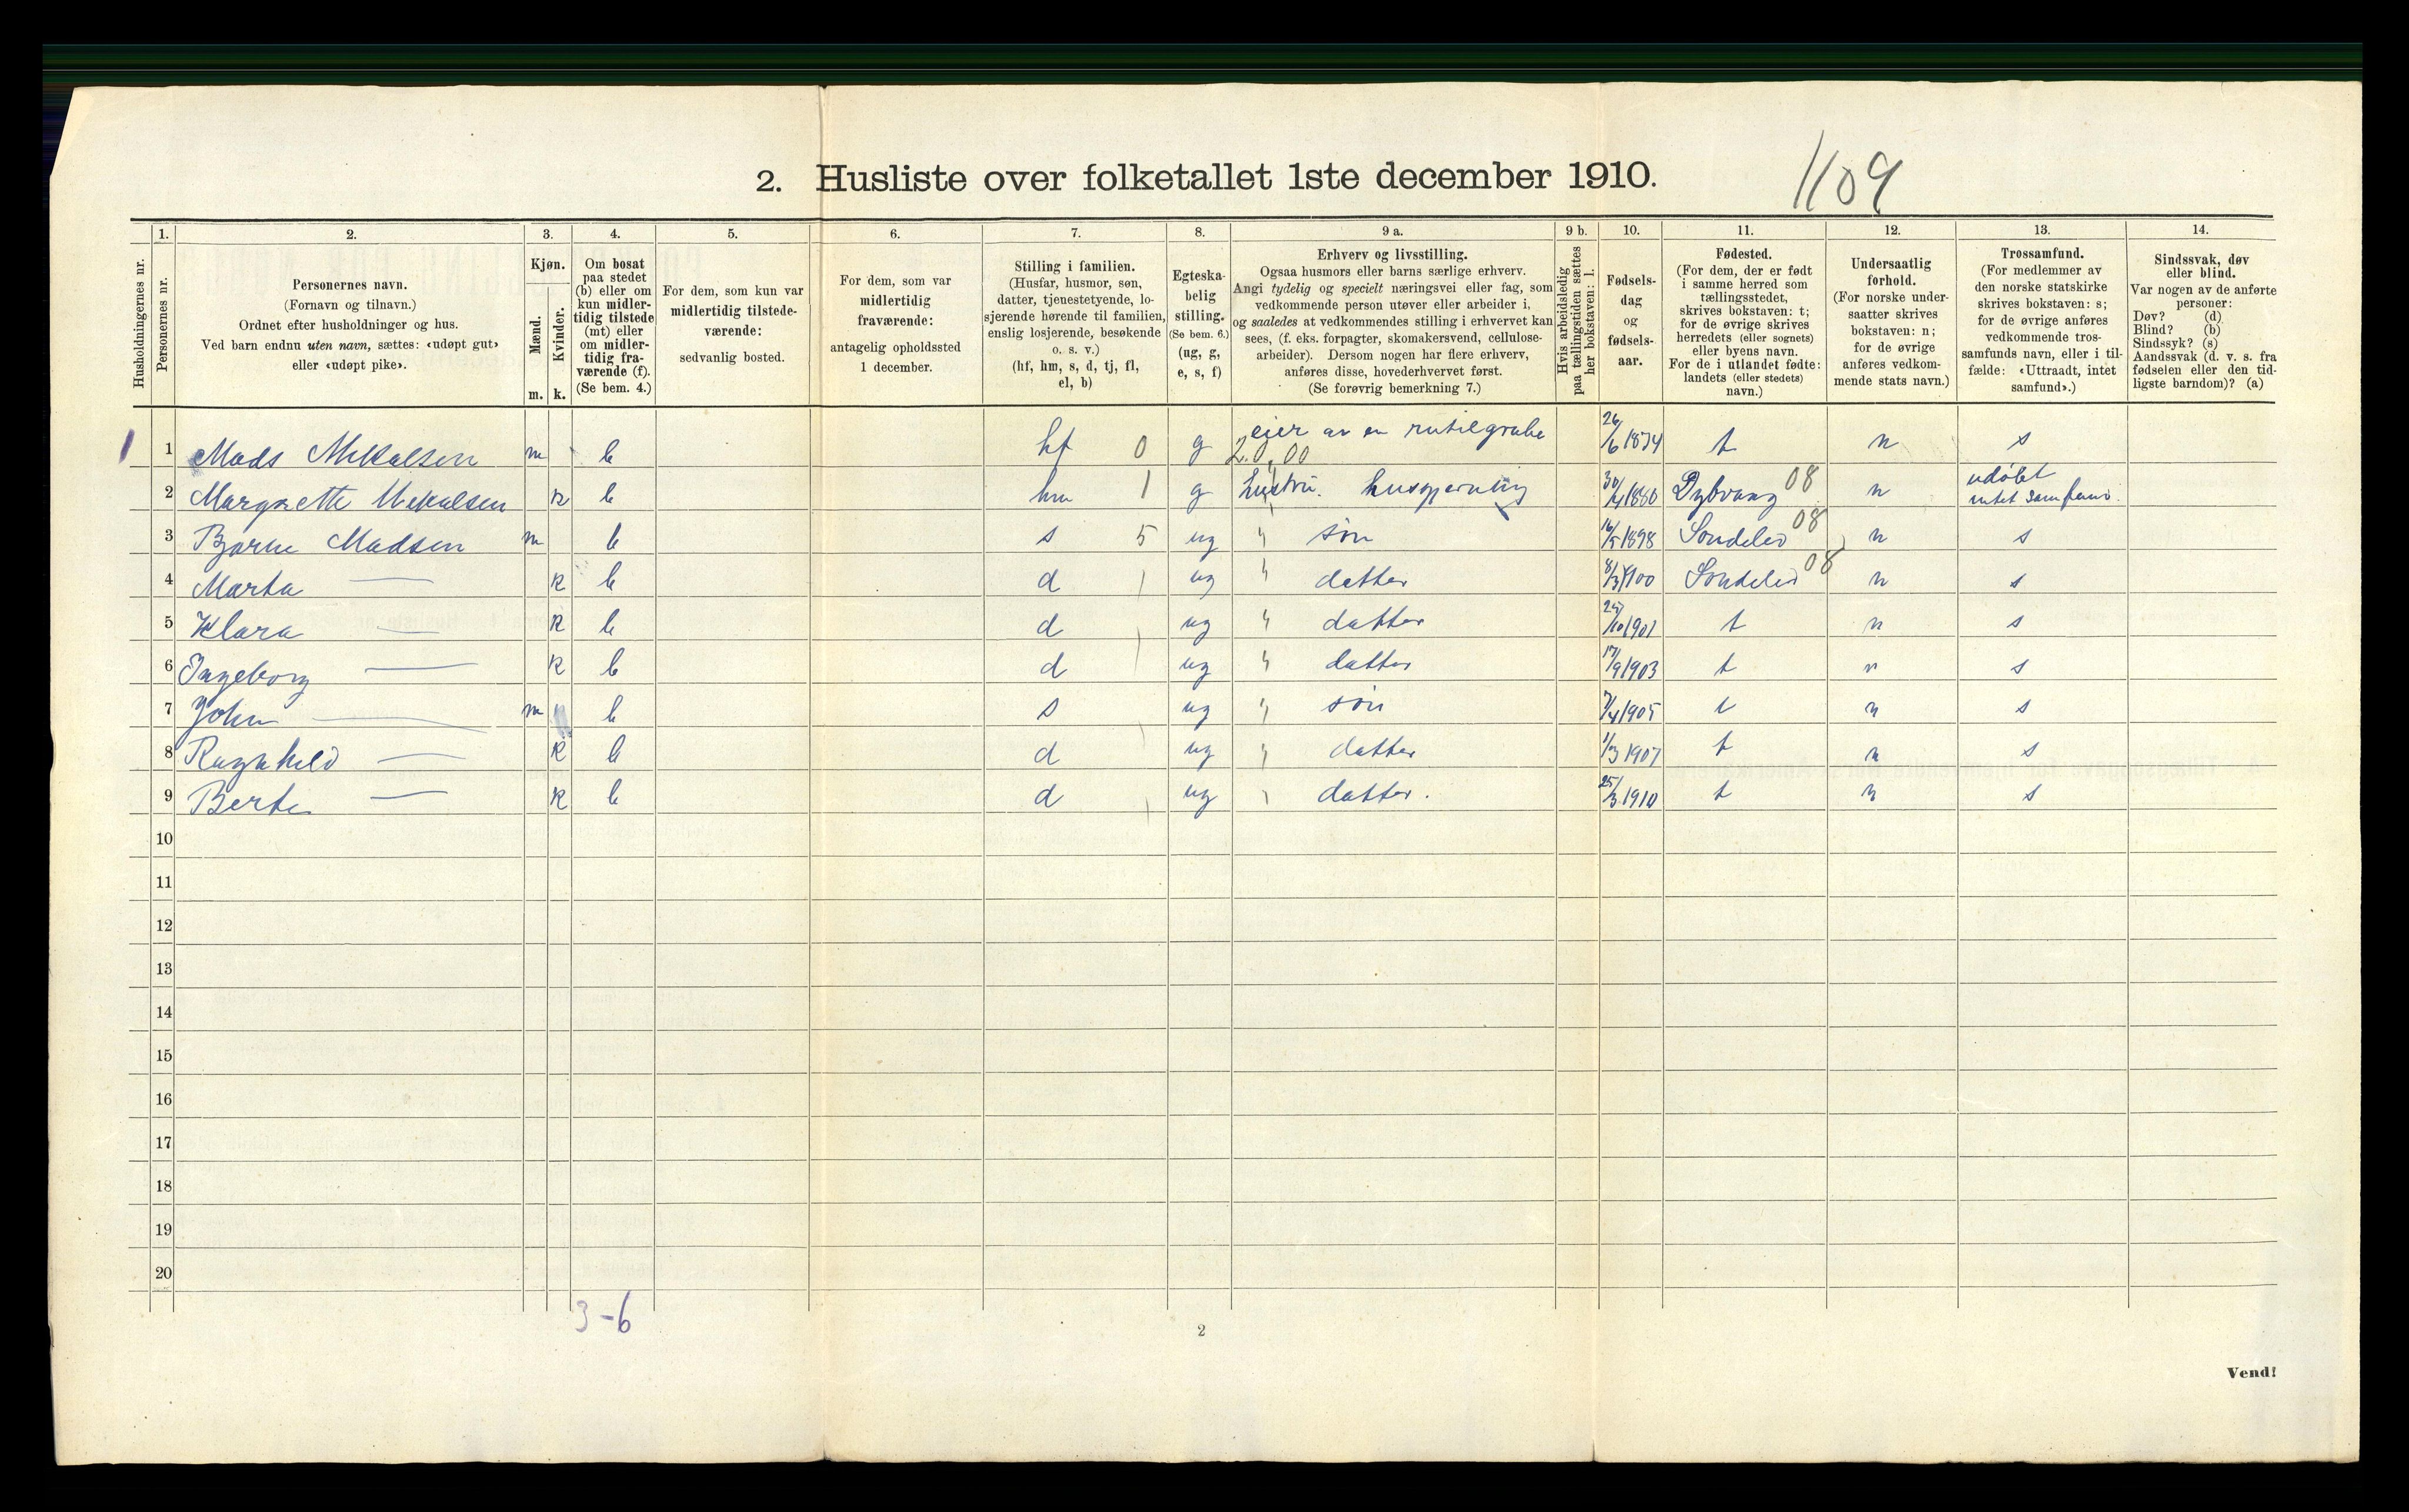 2. Husliste over folketallet 1ste december 1910.
1109
1. 2. 3. 4. 5. 6. 7. 8. 9 a. 9 b. 10. 11. 12. 13. 14.
Husholdningernes nr.
Personernes nr.
Personernes navn.
(Fornavn og tilnavn.)
Ordnet efter husholdninger og hus.
Ved barn endnu uten navn, sættes: «udøpt gut»
eller «udøpt pike».
Kjøn.
Mænd.
Kvinder.
m. k.
Om bosat
paa stedet
(b) eller om
kun midler-
tidig tilstede
(mt) eller
om midler-
tidig fra-
værende (f).
(Se bem. 4.)
For dem, som kun var
midlertidig tilstede-
værende:
sedvanlig bosted.
For dem, som var
midlertidig
fraværende:
antagelig opholdssted
1 december.
Stilling i familien.
(Husfar, husmor, søn,
datter, tjenestetyende, lo-
sjerende hørende til familien,
enslig losjerende, besøkende
o. s. v.)
(hf, hm, s, d, tj, fl,
el, b)
Egteska-
belig
stilling.
(Se bem. 6.)
(ug, g,
e, s, f)
Erhverv og livsstilling.
Ogsaa husmors eller barns særlige erhverv.
Angi tydelig og specielt næringsvei eller fag, som
vedkommende person utøver eller arbeider i,
og saaledes at vedkommendes stilling i erhvervet kan
sees, (f. eks. forpagter, skomakersvend, cellulose-
arbeider). Dersom nogen har flere erhverv,
anføres disse, hovederhvervet først.
(Se forøvrig bemerkning 7.)
Hvis arbeidsledig
paa tællingstiden sættes
her bokstaven: l.
Fødsels-
dag
og
fødsels-
aar.
Fødested.
(For dem, der er født
i samme herred som
tællingsstedet,
skrives bokstaven: t;
for de øvrige skrives
herredets (eller sognets)
eller byens navn.
For de i utlandet fødte:
landets (eller stedets)
navn.)
Undersaatlig
forhold.
(For norske under-
saatter skrives
bokstaven: n;
for de øvrige
anføres vedkom-
mende stats navn.)
Trossamfund.
(For medlemmer av
den norske statskirke
skrives bokstaven: s;
for de øvrige anføres
vedkommende tros-
samfunds navn, eller i til-
fælde: «Uttraadt, intet
samfund».)
Sindssvak, døv
eller blind.
Var nogen av de anførte
personer:
Døv? (d)
Blind? (b)
Sindssyk? (s)
Aandssvak (d. v. s. fra
fødselen eller den tid-
ligste barndom)? (a)
1 1 Mads Mikalsen m b hf 0 g eier av en rutilgrube 2.0,00 26/6 1874 t n s
2 Margrethe Mikalsen k b hm 1 g hustru. husgjerning 30/4 1880 Dybvaag 08 n udøbt intet samfund.
3 Bjarne Madsen m b s 5 ug " søn 16/5 1898 Søndeled 08 n s
4 Marta — k b d ug " datter 8/3 1900 Søndeled 08 n s
5 Klara — k b d ug " datter /10 1901 t n s
6 Ingeborg — k b d ug " datter 17/9 1903 t n s
7 John — m b s ug " søn 7/4 1905 t n s
8 Ragnhild — k b d ug " datter 1/3 1907 t n s
9 Berte — k b d ug " datter. 25/3 1910 t n s
10
11
12
13
14
15
16
17
18
19
20
3-6
2
Vend!